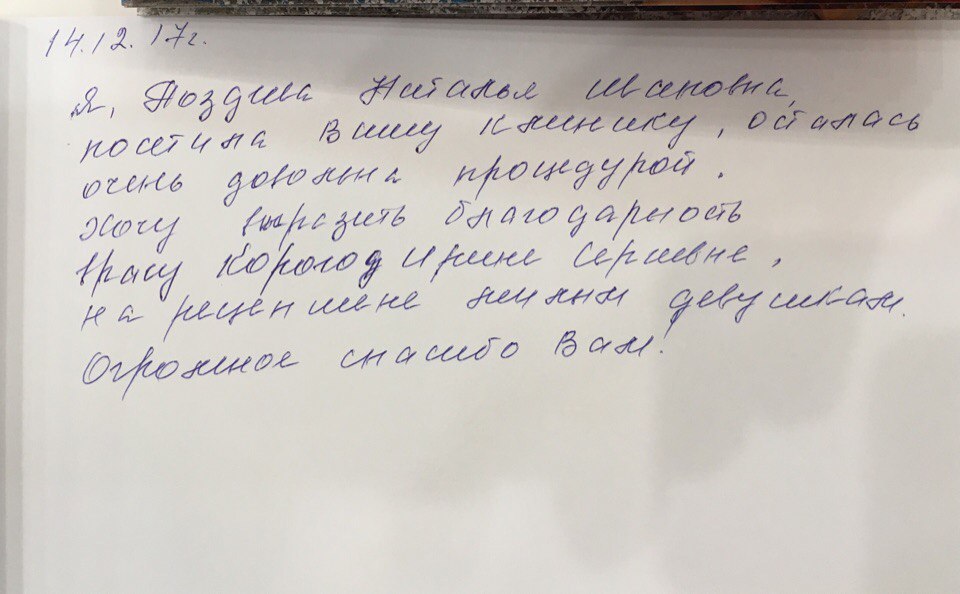 14.12.17г.
Я, Поздива Наталья Ивановна,
посетила Вашу клинику, осталась
очень довольна процедурой.
Хочу выразить благодарность
врачу Корогод Ирине Сергеевне,
на рецепшене милым девушкам.
Огромное спасибо Вам.